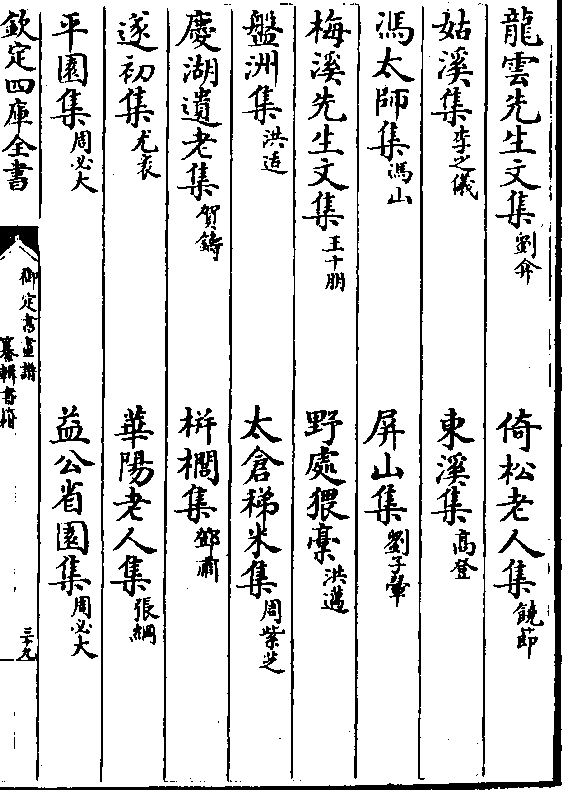 龍雲先生文集劉弇　倚松老人集饒節
姑溪集李之儀　東溪集高登
馮太師集馮山　屏山集劉子翬
梅溪先生文集王十朋　野處猥稾洪邁
盤洲集洪适　太倉稊米集周紫芝
慶湖遺老集賀鑄　栟櫚集鄧肅
遂初集尤袤　華陽老人集張綱
平園集周必大　益公省園集周必大
欽定四庫全書　御定書畫譜　纂輯書籍　三十九